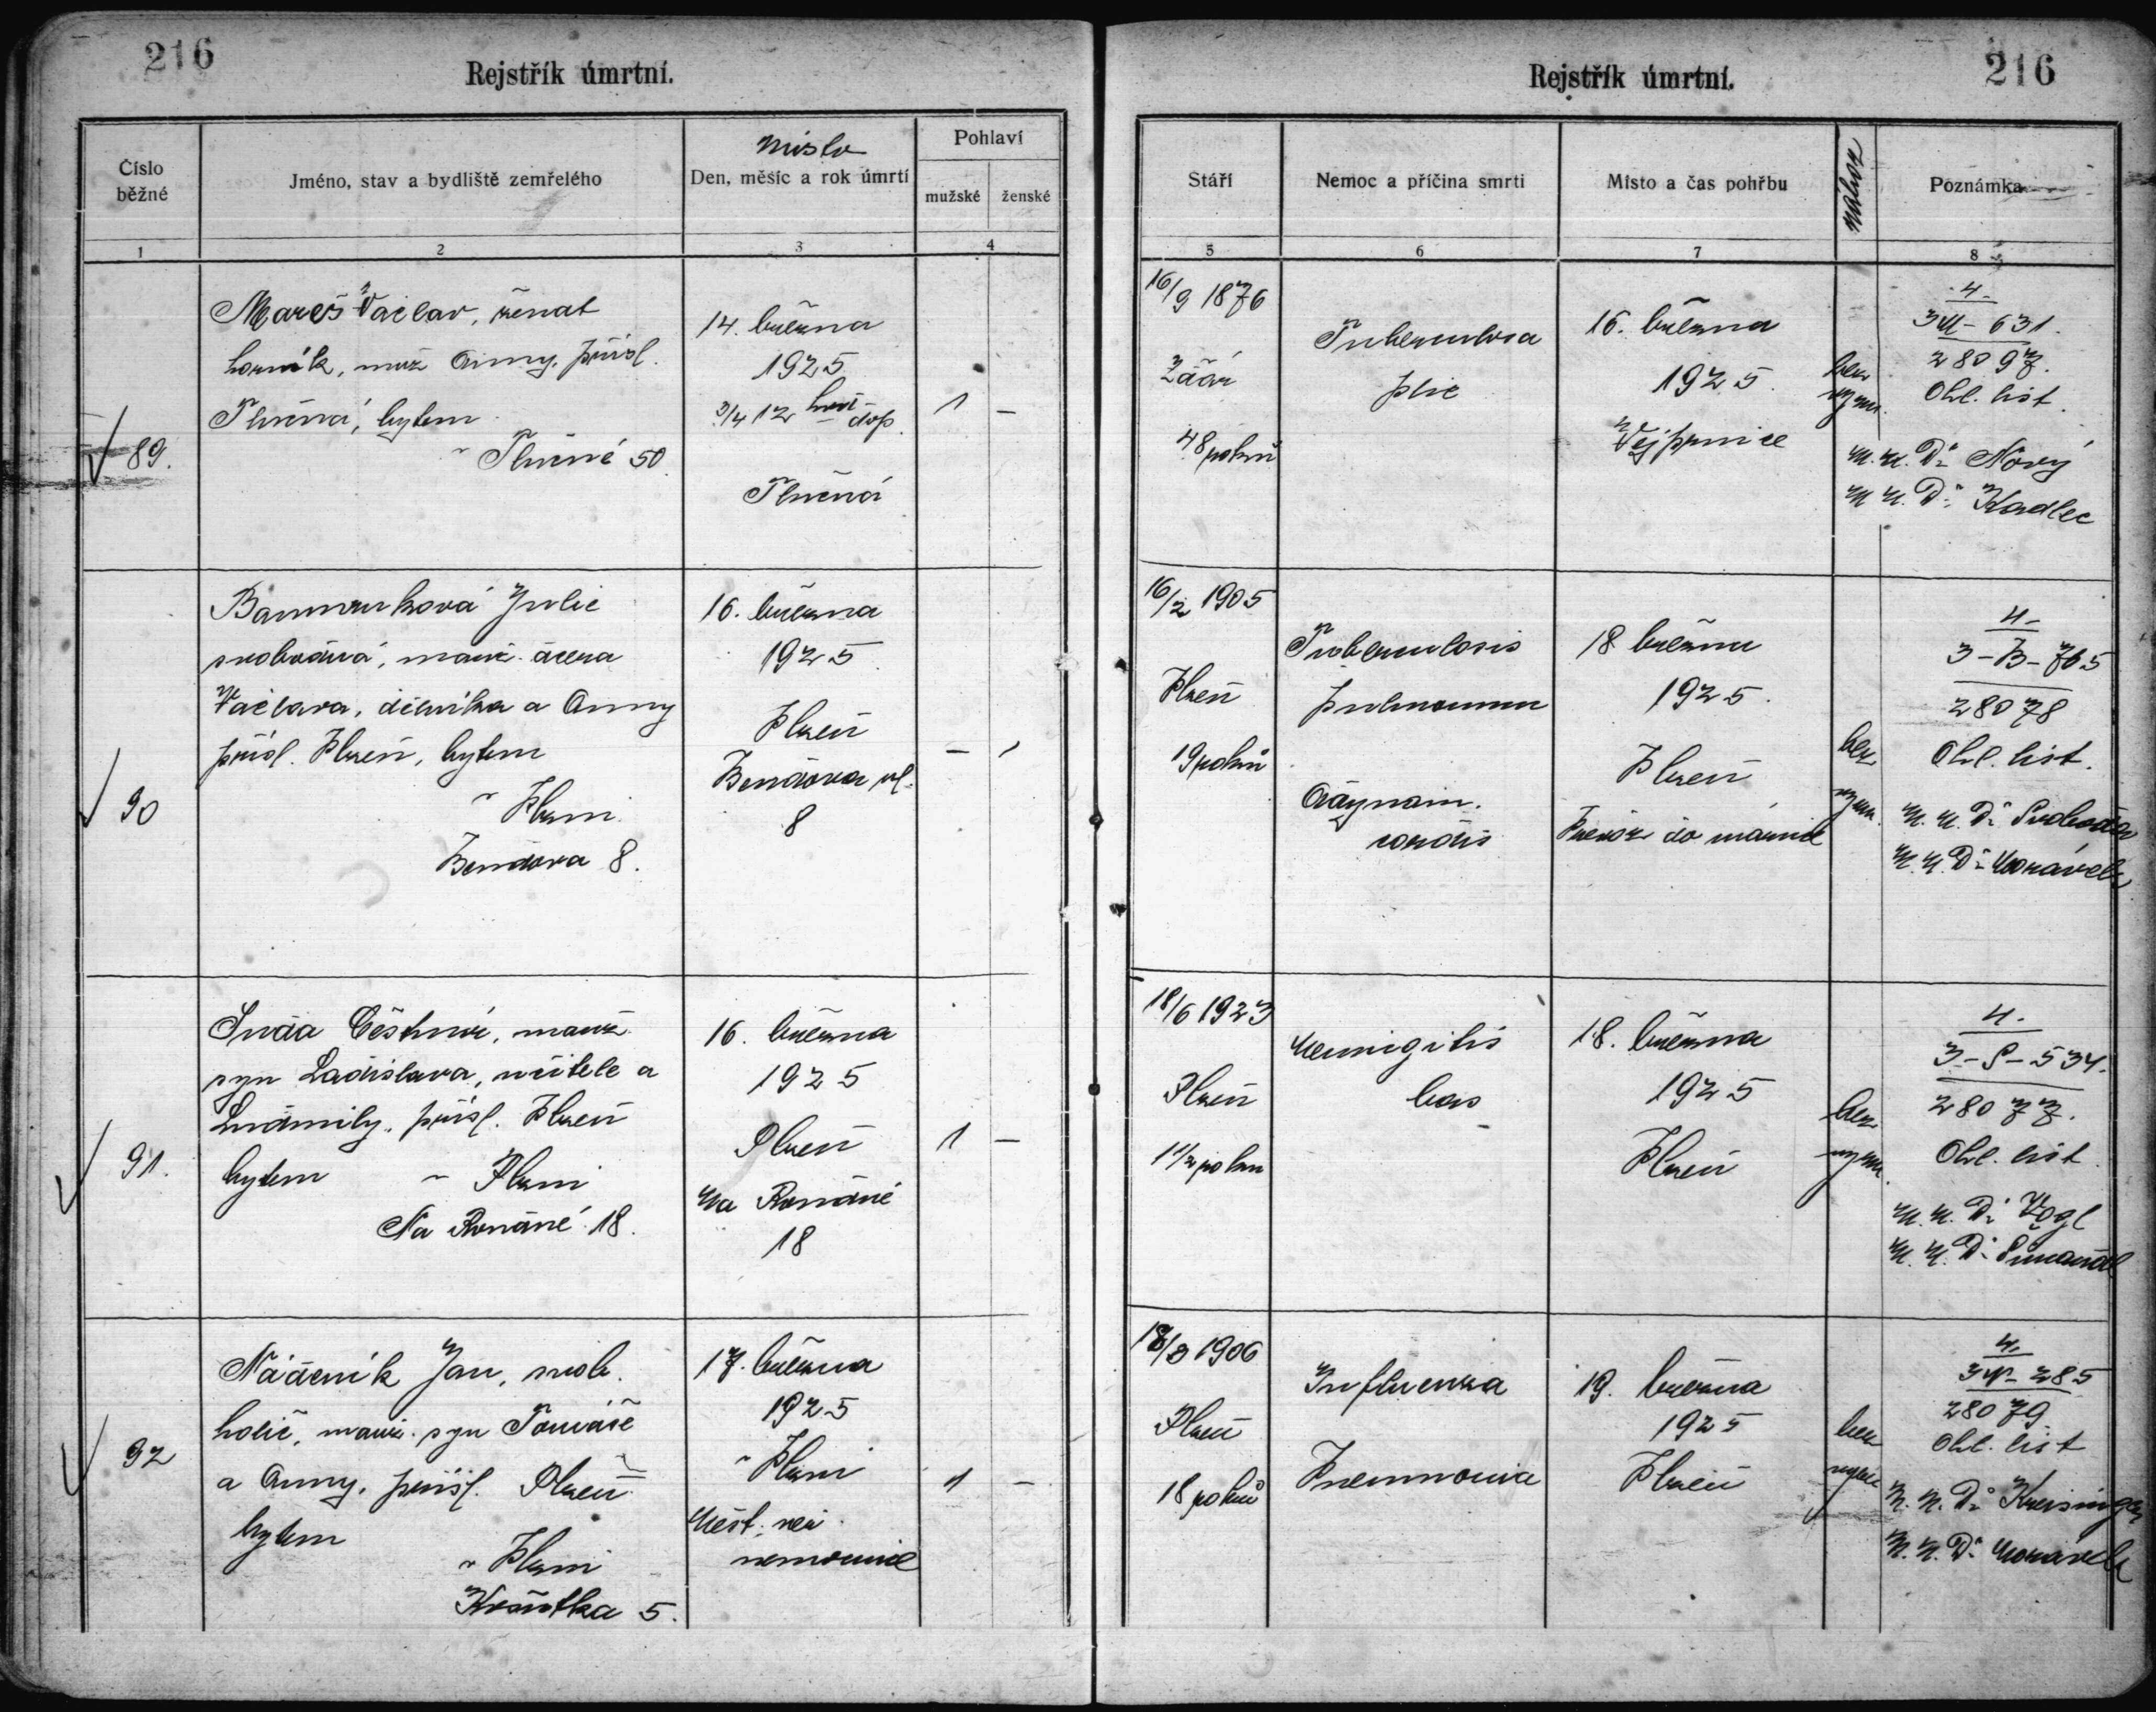 216
Rejstřík úmrtní.
Číslo běžné
Jméno, stav a bydliště zemřelého
Místo
Den, měsíc a rok úmrtí
Pohlaví
mužské
ženské
1
2
3
4
89.
Mareš Václav, ženat
horník, muž Anny, přísl.
Tlučná, bytem
v Tlučné 50
14. března
1925
3/4 12 hod dop.
Tlučná
1
–
90
Julie
svobodná, manž. dcera
Václava, dělníka a Anny
přísl. Plzeň, bytem
v Plzni
Bendova 8.
16. března
1925
Plzeň
Bendova ul.
8
–
1
91.
Ctěstmír, manž.
syn Ladislava, učitele a
Ludmily, přísl. Plzeň
bytem v Plzni
Na Roudné 18.
16. března
1925
Plzeň
Na Roudné
18
1
–
92
Nádeník Jan, svob.
holič, manž. syn Tomáše
a Anny, přísl. Plzeň
bytem
v Plzni
5.
17. března
1925
v Plzni
Měst. veř.
nemocnice
1
–
216
Rejstřík úmrtní.
Stáří
Nemoc a příčina smrti
Místo a čas pohřbu
Poznámka
5
6
7
8
16/9 1876
48 roků
Tuberculosa
plic
16. března
1925.
Vejprnice
bez
4.
631.
28097.
Ohl. list.
M.U.Dr Nový
M.U.Dr Kadlec
16/2 1905
Plzeň
19 roků
Tuberculosis
pulmonum
cordis
18 března
1925.
Plzeň
Převoz do márnice
bez
4.
3-B-765
28078
Ohl. list.
M.U.Dr Svoboda
M.U.Dr Morávek
18/6 1923
Plzeň
1 1/2 roku
Menigitis
bas
18. března
1925
Plzeň
bez
4.
3-S-534.
28077.
Ohl. list
M.U.Dr Vogl
M.U.Dr
1906
Plzeň
18 roků
Influenza
Pneumonia
19. března
1925
Plzeň
bez
4.
3N-285
28079
Ohl. list
M.U.Dr Kreisinger
M.U.Dr Morávek